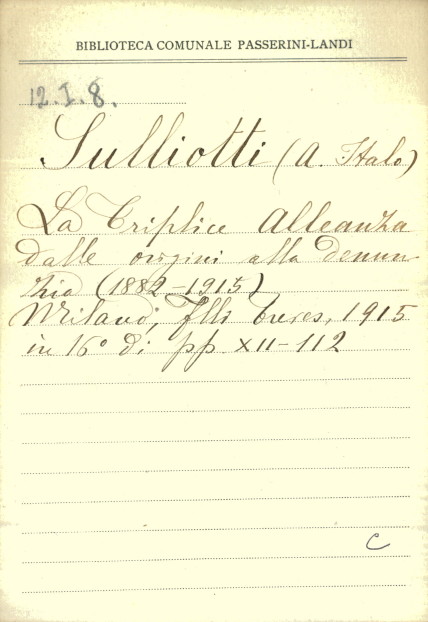 BIBLIOTECA COMUNALE PASSERINI-LANDI
12.I.8.
Sulliotti (A. Italo)
La Triplice Alleanza
dalle origini alla denun
zia (1882-1915)
Milano, Flli Treves, 1915
in 16° di pp XII-112
C